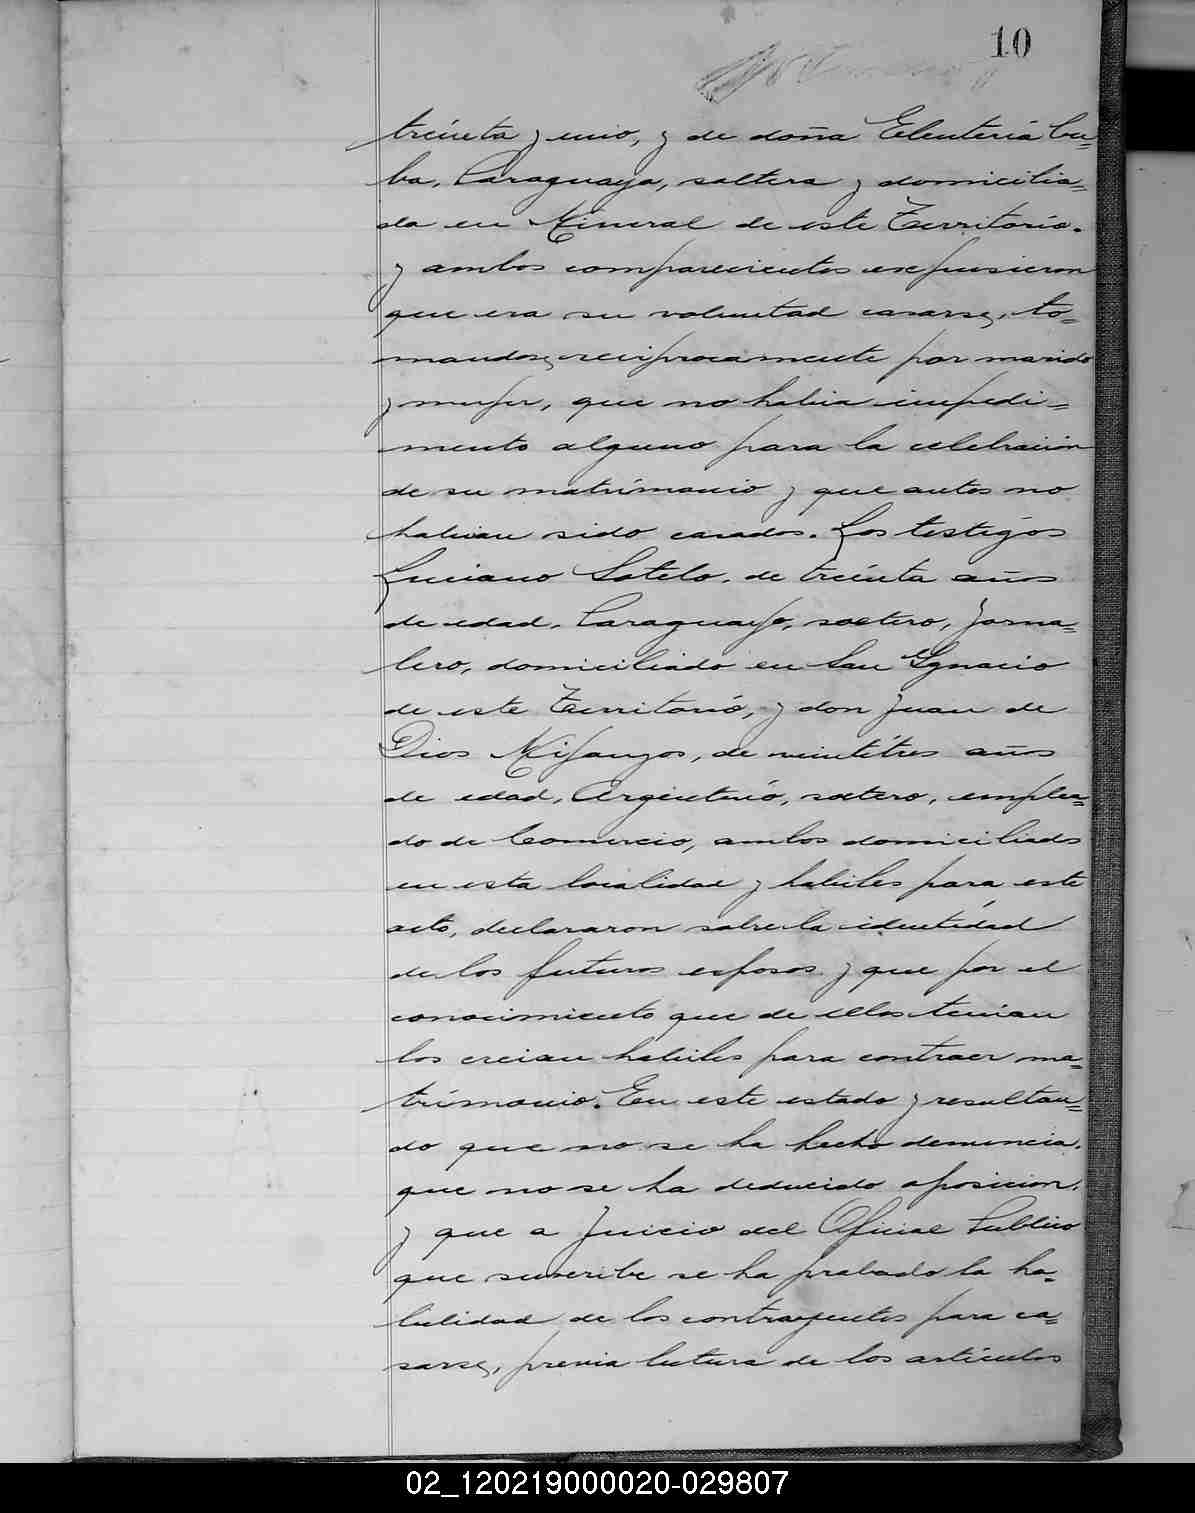 10
treinta y uno, y de doña Eleuteria Cu=
ba, Paraguaya, soltera y domicilia=
da en Mineral de este Territorio.
y ambos comparecientes expusieron
que era su voluntad casarse, to=
mandose reciprocamente por marido
y mujer, que no habia impedi=
mento alguno para la celebracion
de su matrimonio y que antes no
habian sido casados. Los testigos
Luciano Sotelo, de treinta años
de edad, Paraguayo, soltero, jorna=
lero, domiciliado en San Ygnacio
de este Territorio, y don Juan de
Dios, de veintitres años
de edad, Argentino, soltero, emplea=
do de Comercio, ambos domiciliados
en esta localidad y habiles para este
acto, declararon sobre la identidad
de los futuros esposos y que por el
conocimiento que de ellos tenian
los creian habiles para contraer ma=
trimonio. En este estado y resultan=
do que no se ha hecho denuncia,
que no se ha deducido oposicion,
y que a juicio del Oficial Publico
que suscribe se ha probado la ha=
bilidad de los contrayentes para ca=
sarse, previa lectura de los articulos
02_120219000020-029807